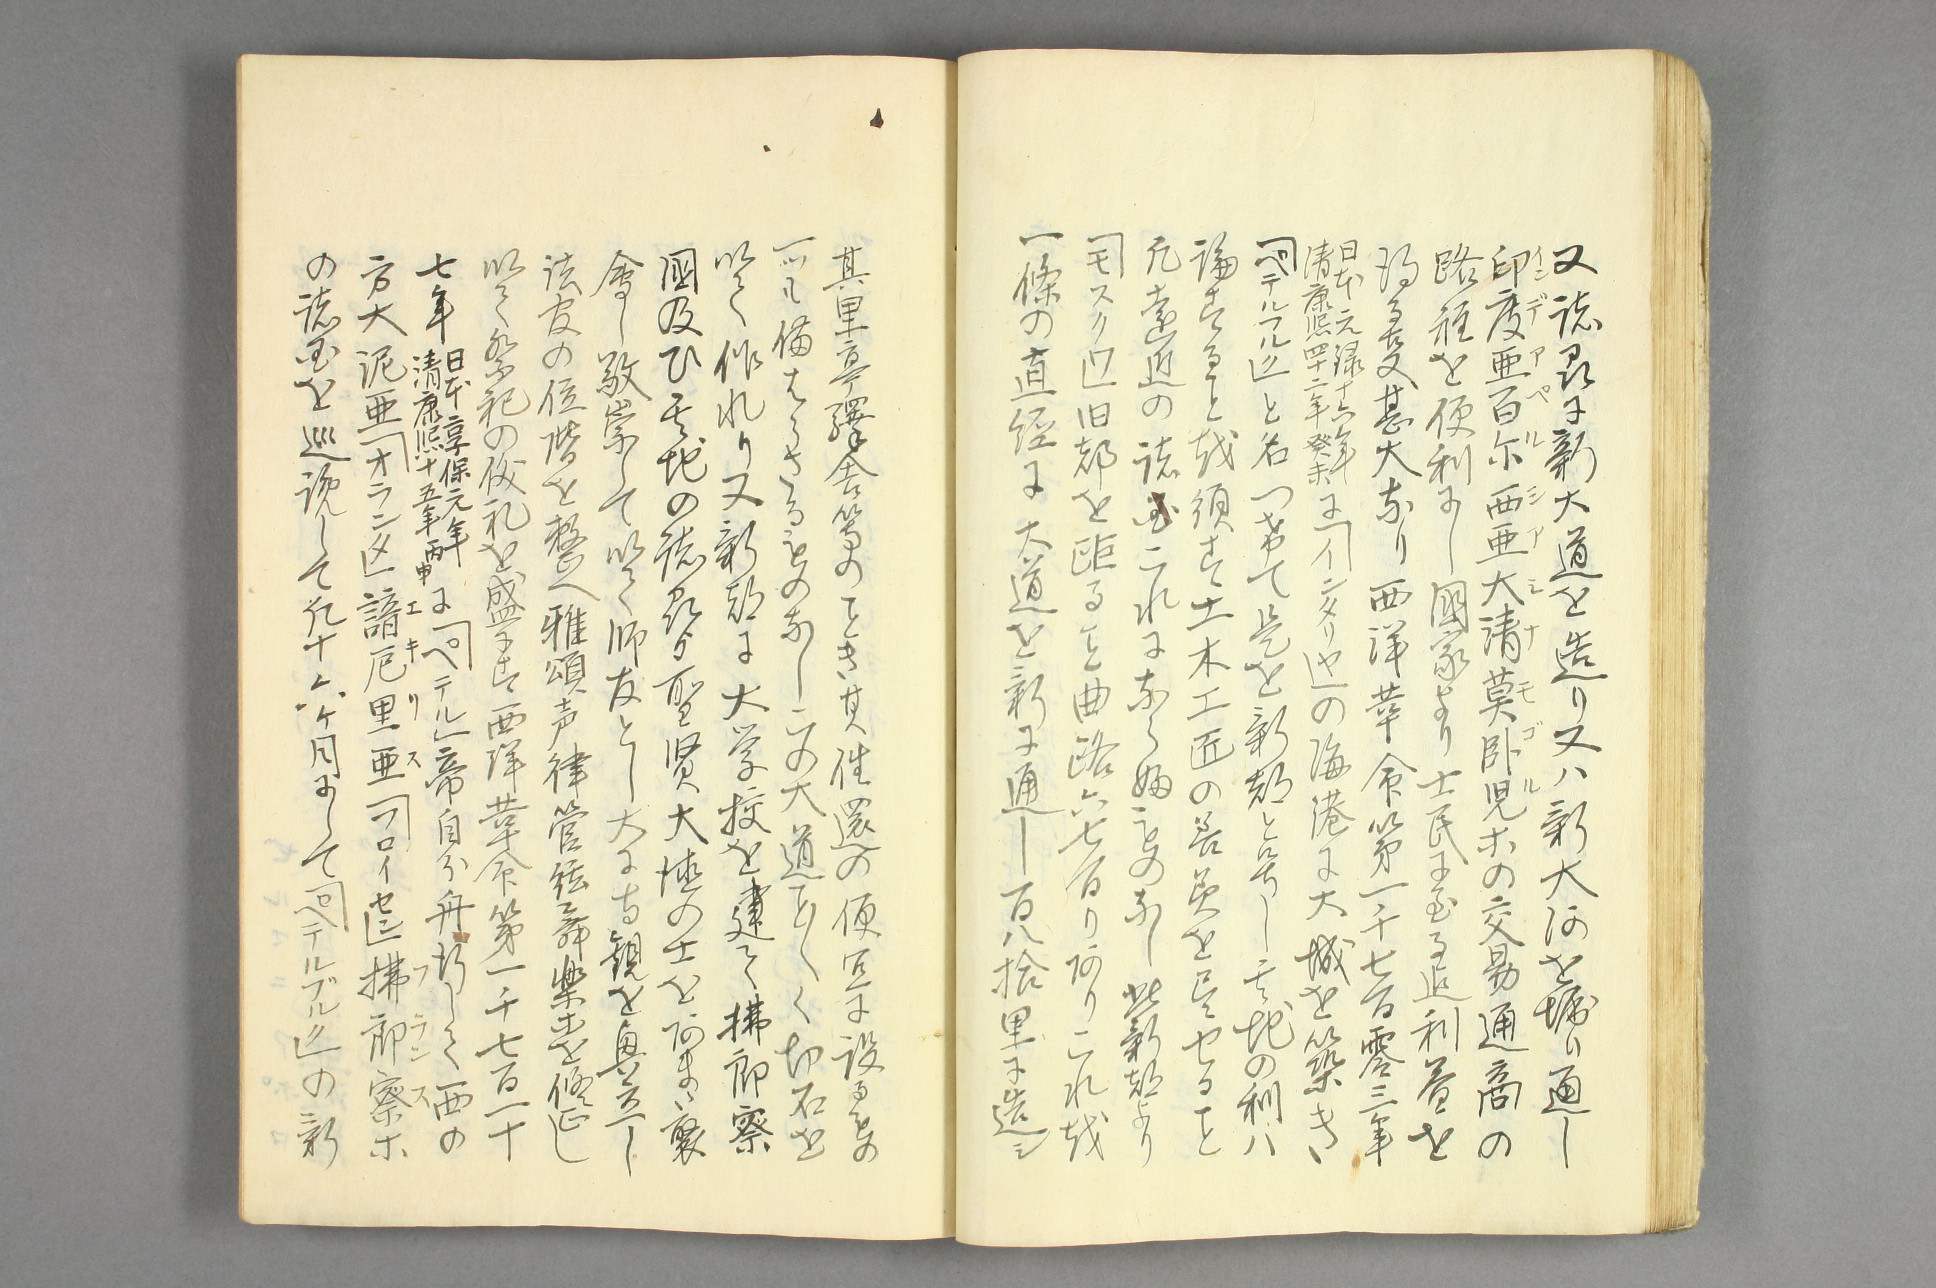 又諸州に新大道を造り又ハ新大河を堀り通し
印度亜百尓西亜大清莫臥児ホの交易通商の
インデアペルシアシナモゴル
路程を便利にし國家より士民に至る迄利益を
得る支甚大なり西洋革命第一千七百零三年
日本元禄十六年
清康熙四十二年癸未
に「インタリヤ」の海港に大城を築き
「ペテルフルク」と名つけて是を新都と号し其地の利ハ
論するを越須す土木工匠の善美を尽せること
凡遠近の諸國これになら婦ものなし此新都より
「モスクワ」旧都を距る支曲路六七百り阿りこれ越
一條の直径に大道を新に通し百八拾里に造ミ
其里亭驛舎等のことき其往還の便宜に設るもの
一ツも備はらさるものなしこの大道ことく切石を
以て作れり又新都に大学挍を建て拂郎察
國及ひ其地の諸州より聖賢大徳の士を阿まく聚
會し敬崇して以て師友とし大に寺観を興立し
法官の位階を整へ雅頌声律管絃舞楽を修正し
以て祭祀の儀礼を盛にす西洋革命第一千七百一十
七年
日本享保元年
清康熙十五年丙申
に「ペテル」帝自分舟行して西の
方大泥亜「オランダ」諳厄里亜「フロイセン」拂郎察ホ
エキリス
フランス
の諸国を巡覧して凡十六ヶ月にして「ペテルブルク」の新